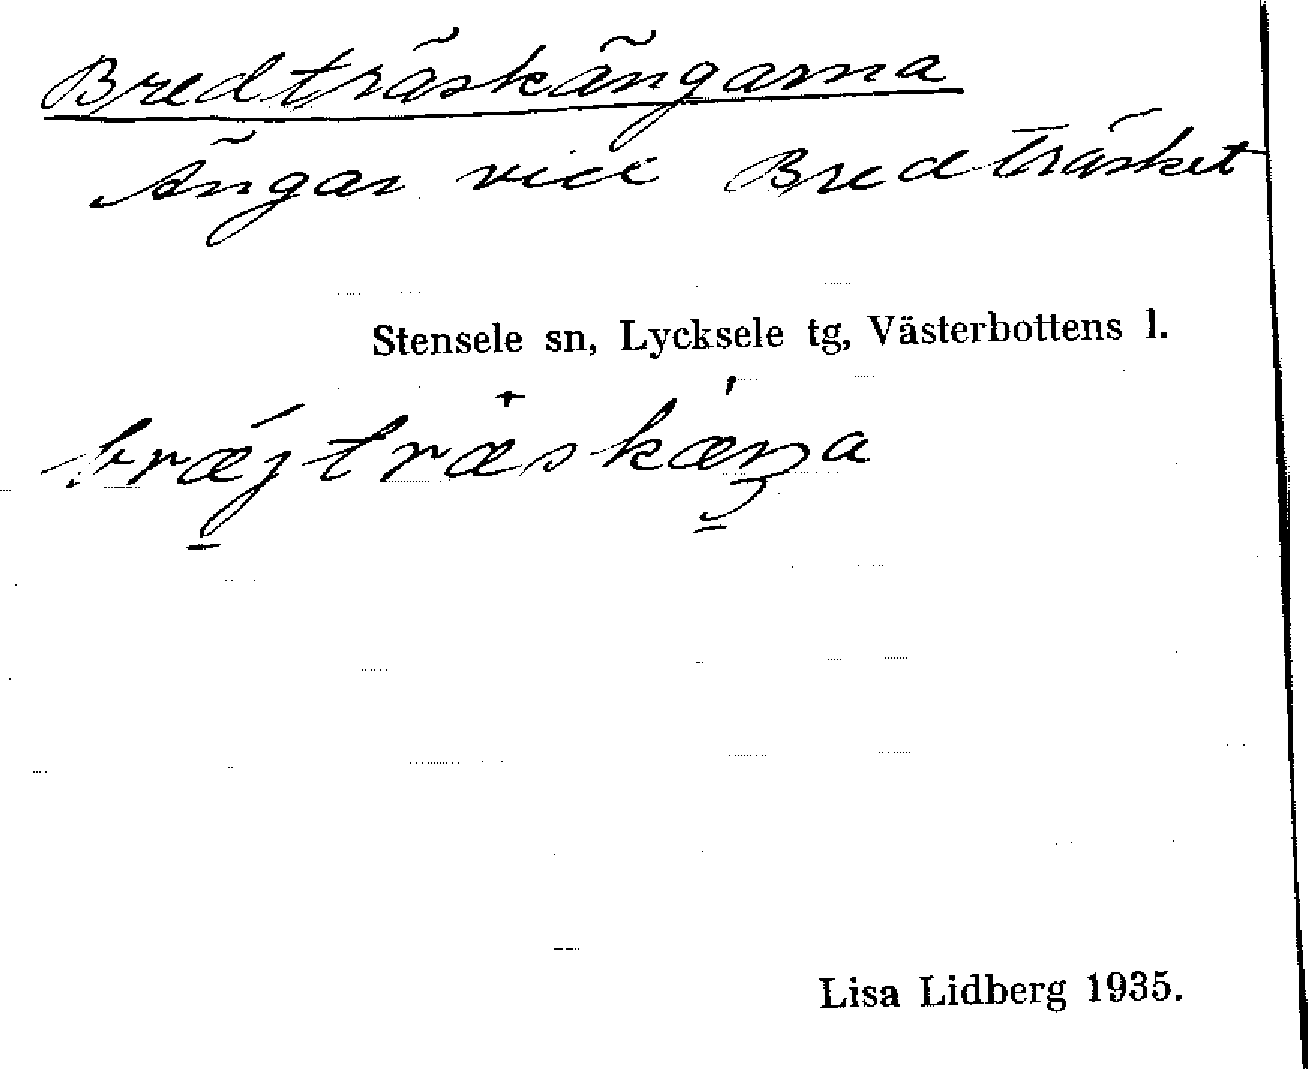 Bredträskängarna
Ängar vid Bredträsket
Stensele sn, Lycksele tg, Västerbottens l.
bræjtræskæŋa
Lisa Lidberg 1935.